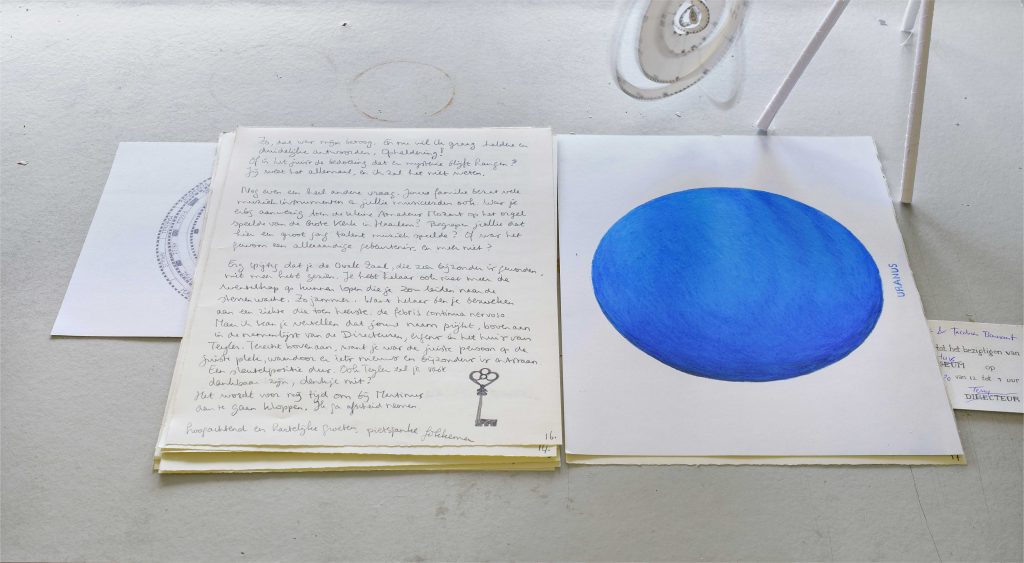 Zo, dat was mijn betoog. En nu wil ik graag heldere en
duidelijke antwoorden. Opheldering!
Of is het juist de bedoeling dat er mysterie blijft hangen?
Jij weet het allemaal, en ik zal het niet weten.
Nog even een heel andere vraag. Jouw familie bezat vele
muziekinstrumenten en jullie musiceerden ook. Was je
erbij aanwezig toen de kleine Amadeus Mozart op het orgel
speelde van de Grote Kerk in Haarlem? Begrepen jullie dat
hier een groot jong talent muziek speelde? Of was het
gewoon een alledaagse gebeurtenis en meer niet?
Erg spijtig dat je de Ovale Zaal, die zeer bijzonder is geworden,
niet meer hebt gezien. Je hebt helaas ook niet meer de
wenteltrap op kunnen lopen die je zou leiden naar de
sterrenwacht. Zo jammer. Want helaas ben je bezweken
aan een ziekte die toen heerste: de febris continua nervosa
Maar ik kan je vertellen dat jouw naam prijkt, bovenaan
in de namenlijst van de Directeuren, ergens in het huis van
Teyler. Terecht bovenaan, want je was de juiste persoon op de
juiste plek, waardoor er iets nieuws en bijzonders is ontstaan
Een sleutelpositie dus. Ook Teyler zal je vast
dankbaar zijn, denk je niet?
Het wordt voor mij tijd om bij Martinus
aan te gaan kloppen. Ik ga afscheid nemen
hoogachtend en hartelijke groeten, pietsjanke fokkema
16.
14.
URANUS
tot het bezigtigen van
op
van 12 tot uur
DIRECTEUR